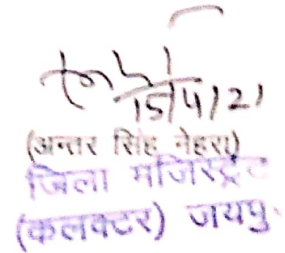 15/4/21
(अन्तर सिंह नेहरा)
जिला मजिस्ट्रेट
(कलक्टर) जयपु